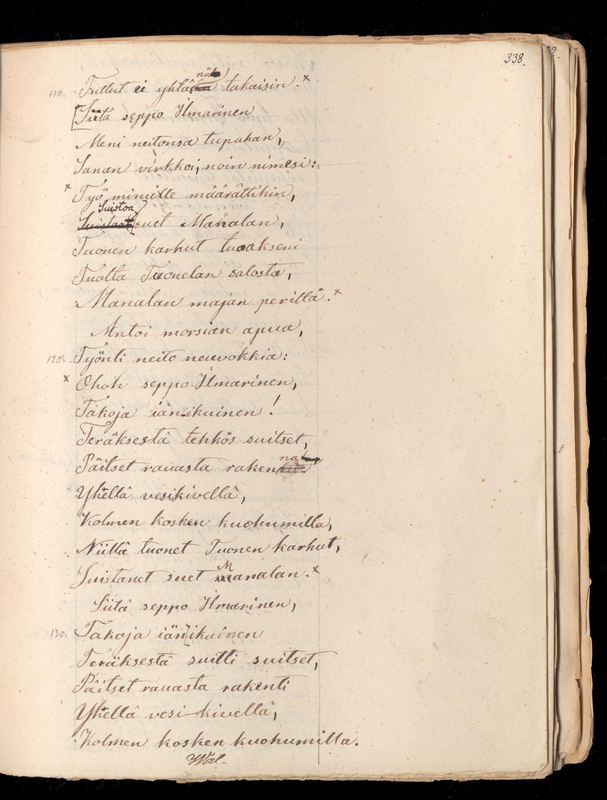 338.
110. Tullut ei yhtänä takaisin. x
[Siitä seppo Ilmarinen
Meni neitonsa tupahan,
Sanan virkkoi, noin nimesi:
x Työ minulle määrättihin,
Suistoa suet Manalan,
Tuonen karhut tuoakseni
Tuolta Tuonelan salosta,
Manalan majan periltä. x
Antoi morsian apua,
120. Työnti neito neuvokkia:
x Ohoh seppo Ilmarinen,
Takoja iänikuinen!
Teräksestä tehkös suitset,
Päitset rauasta rakenna
Yhellä vesikivellä,
Kolmen kosken kuohumilla,
Niillä tuonet Tuonen karhut,
Suistanet suet Manalan. x
Siitä seppo Ilmarinen,
130. Takoja iänikuinen
Teräksestä suitti suitset,
Päitset rauasta rakenti
Yhellä vesi-kivellä,
Kolmen kosken kuohumilla.
Wal-